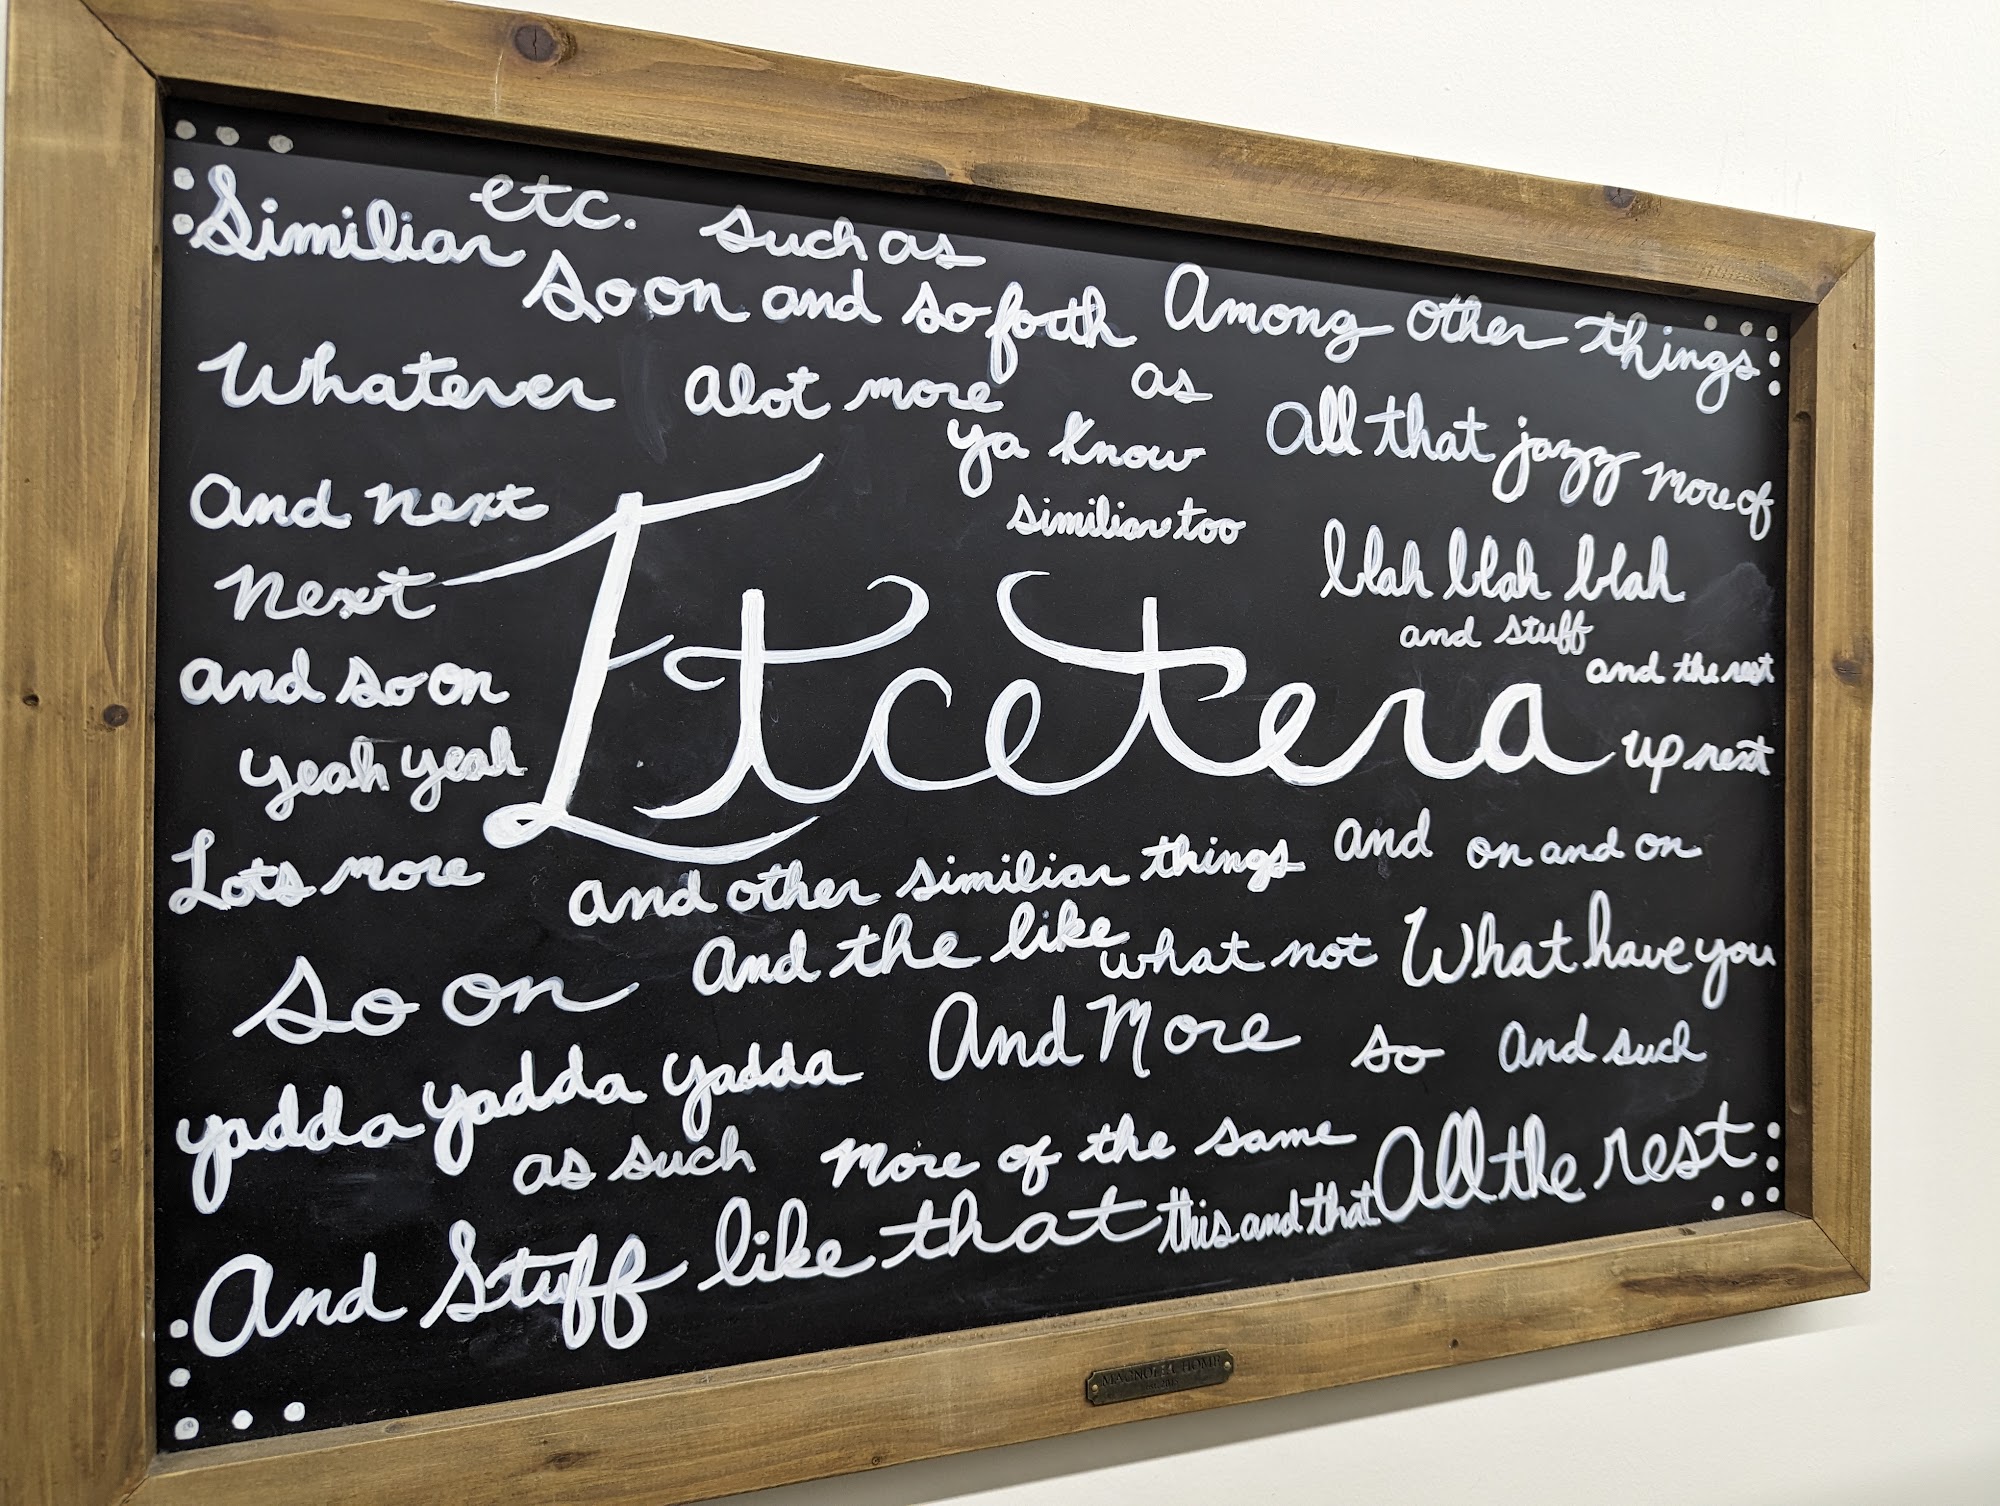 etc. such as
Similiar so on and so forth Among other things
Whatever alot more as
ya know All that jazz more of
and next similiar too
next blah blah blah
and stuff
and the rest
Etcetera
and so on
yeah yeah up next
Lots more and other similiar things and on and on
so on and the like what not What have you
yadda yadda yadda And More so and such
as such more of the same All the rest
And Stuff like that this and that
MAGNOLIA HOME